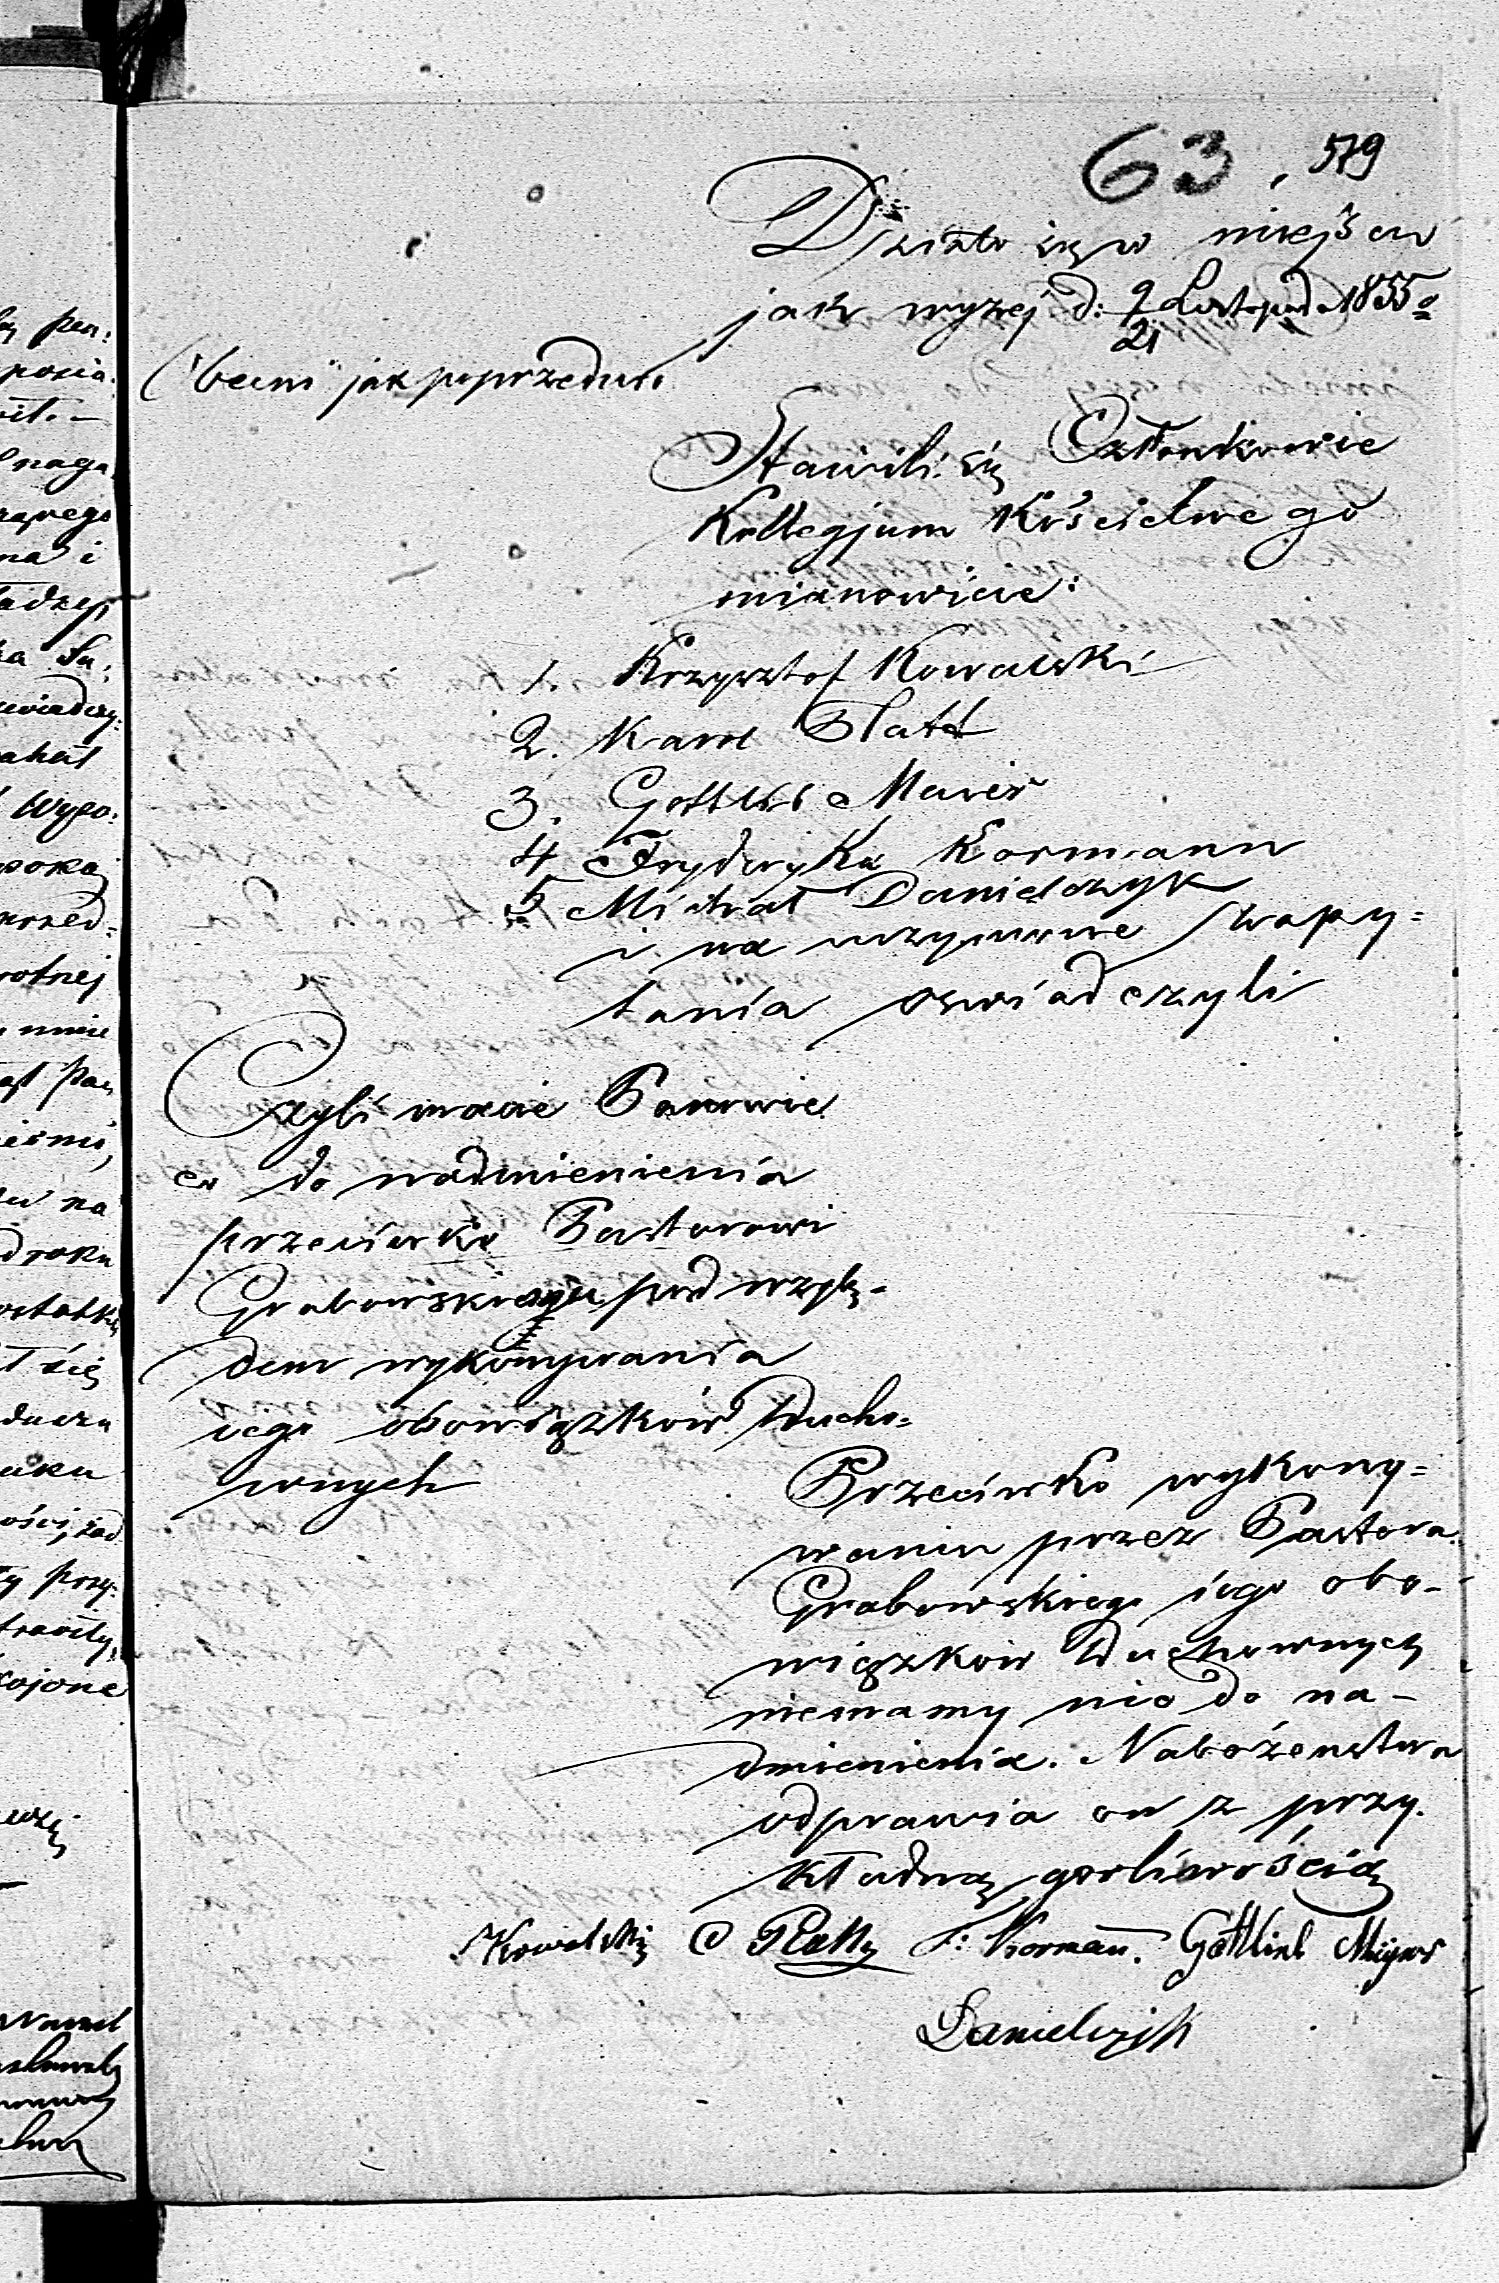 63. 579
Działo się w miejscu
jak wyżej d: 9/21 Listopada 1855 o
Obecni jak poprzednio
Stawili się Członkowie
Kollegjum Kościelnego
mianowicie:
1. Krzysztof Kowalski
2. Karol Platt
3. Gottlib Maier
4 Fryderyk Kormann
5 Michał Danielczyk
i na uczynione zapy=
tania oświadczyli
Czyli macie Panowie
co do nadmienienia
przeciwko Pastorowi
Grabowskiemu pod wzglę-
dem wykonywania
jego obowiązków Ducho=
wnych
Przeciwko wykony=
waniu przez Pastora
Grabowskiego jego obo-
wiązków Duchownych
niemamy nic do na-
dmienienia. Nabożeństwa
odprawia on z przy-
kładną gorliwością
Kowalski C Platt F: Kormañ. Gottlieb
Danielczyk
pen:
posia:
naga
na i
wiadczy:
Wypo:
rotnej
mnie
Pan
na
roku
ostatku
się
przy:
kojone